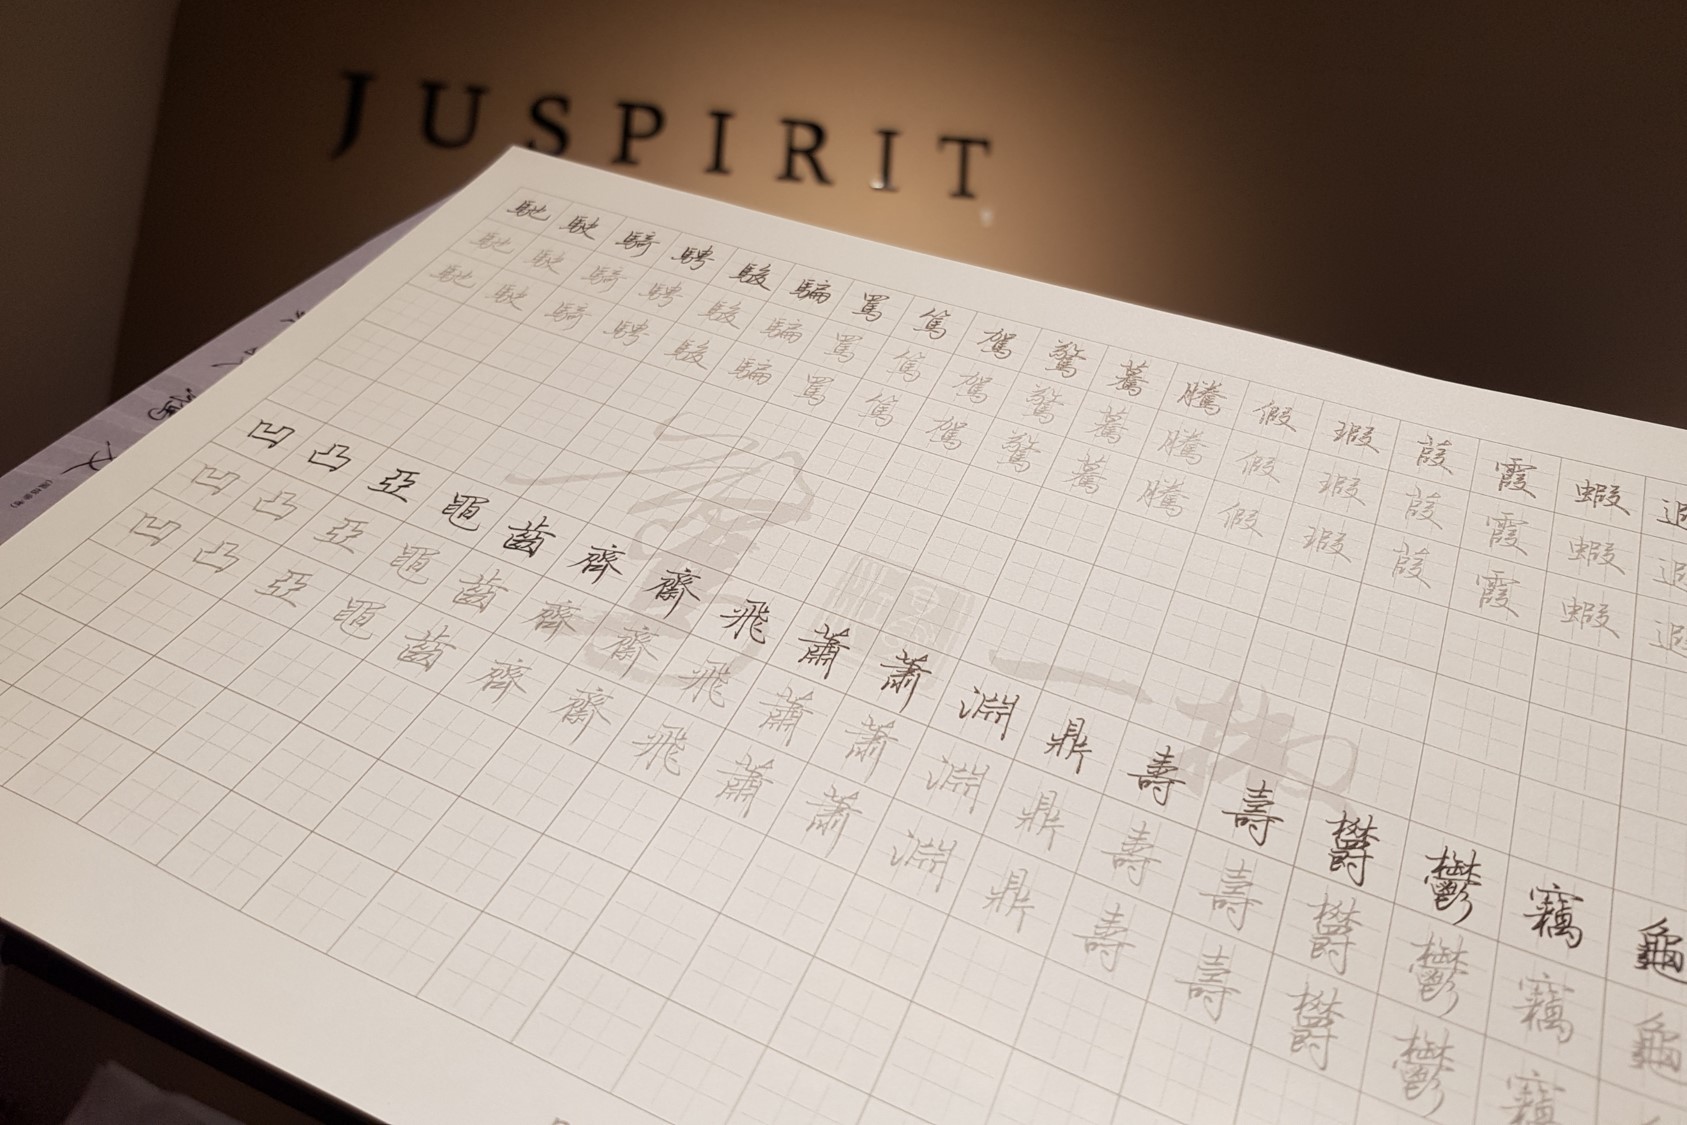 JUSPIRIT
馳駛騎聘駿騙罵篤駕驚驀騰假瑕葭霞蝦遐
馳駛騎聘駿騙罵篤駕驚驀騰假瑕葭霞蝦遐
馳駛騎聘駿騙罵篤駕驚驀騰假瑕葭霞蝦遐
凹凸亞黽齒齊齋飛蕭蕭淵鼎壽壽鬱鬱竊龜
凹凸亞黽齒齊齋飛蕭蕭淵鼎壽壽鬱鬱竊龜
凹凸亞黽齒齊齋飛蕭蕭淵鼎壽壽鬱鬱竊